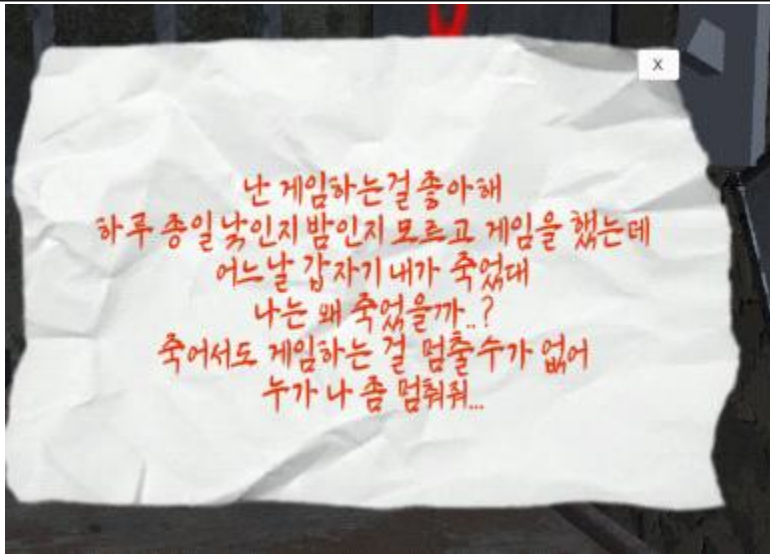 X
난 게임하는걸 좋아해
하루 종일 낮인지 밤인지 모르고 게임을 했는데
어느날 갑자기 내가 죽었대
나는 왜 죽었을까..?
죽어서도 게임하는 걸 멈출수가 없어
누가 나 좀 멈춰줘...